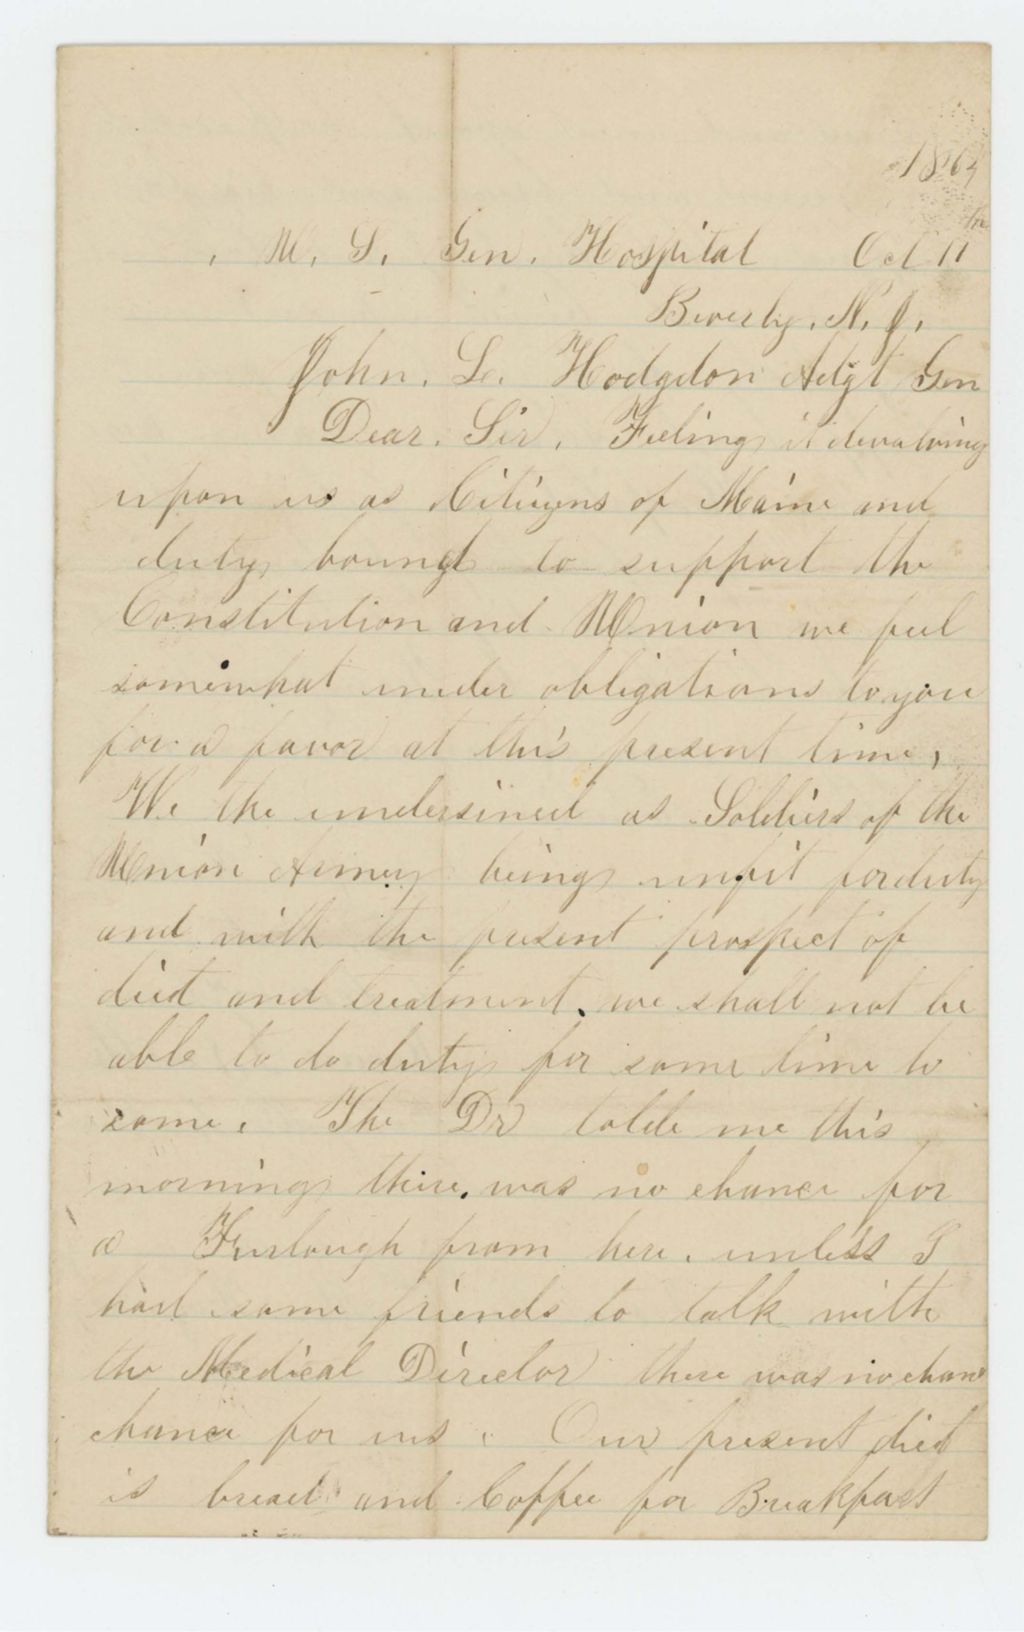 1864
U. S. Gen. Hospital Oct 11th
Beverly, N. J.
John. L. Hodgdon Adgt Gen
Dear. Sir. Feeling it devalving
upon us as Citizens of Maine and
duty bound to support the
Constitution and Union we feel
somewhat under obligations to you
for a favor at this present time,
We the undersined as Soldiers of the
Union Army being unfit for duty
and with the present prospect of
diet and treatment. we shall not be
able to do duty for some time to
come. The Dr tolde me this
morning there was no chance for
a Furlough from here. unless I
had some friends to talk with
the Medical Director there was no chanc
chance for us. Our present diet
is bread and Coffee for Breakfast